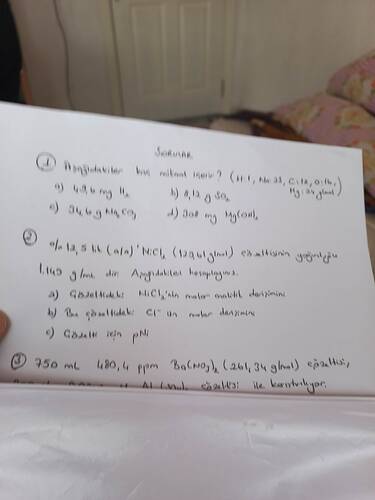 SORULAR
1 Aşağıdakiler kaç milimol içerir? (H:1, Na:23, C:12, O:16,
Mg:24 g/mol)
a) 49,6 mg H₂ b) 8,12 g SO₂
c) 34,6 g Na₂CO₃ d) 308 mg Mg(OH)₂
2 % 12,5 lik (a/a) NiCl₂ (129,61 g/mol) çözeltisinin yoğunluğu
1,149 g/mL dir. Aşağıdakileri hesaplayınız.
a) Çözeltideki NiCl₂'nin molar analitik derişimini
b) Bu çözeltideki Cl⁻ un molar derişimini
c) Çözelti için pNi
3 750 mL 480,4 ppm Ba(NO₃)₂ (261,34 g/mol) çözeltisi,
çözeltisi ile karıştırılıyor.